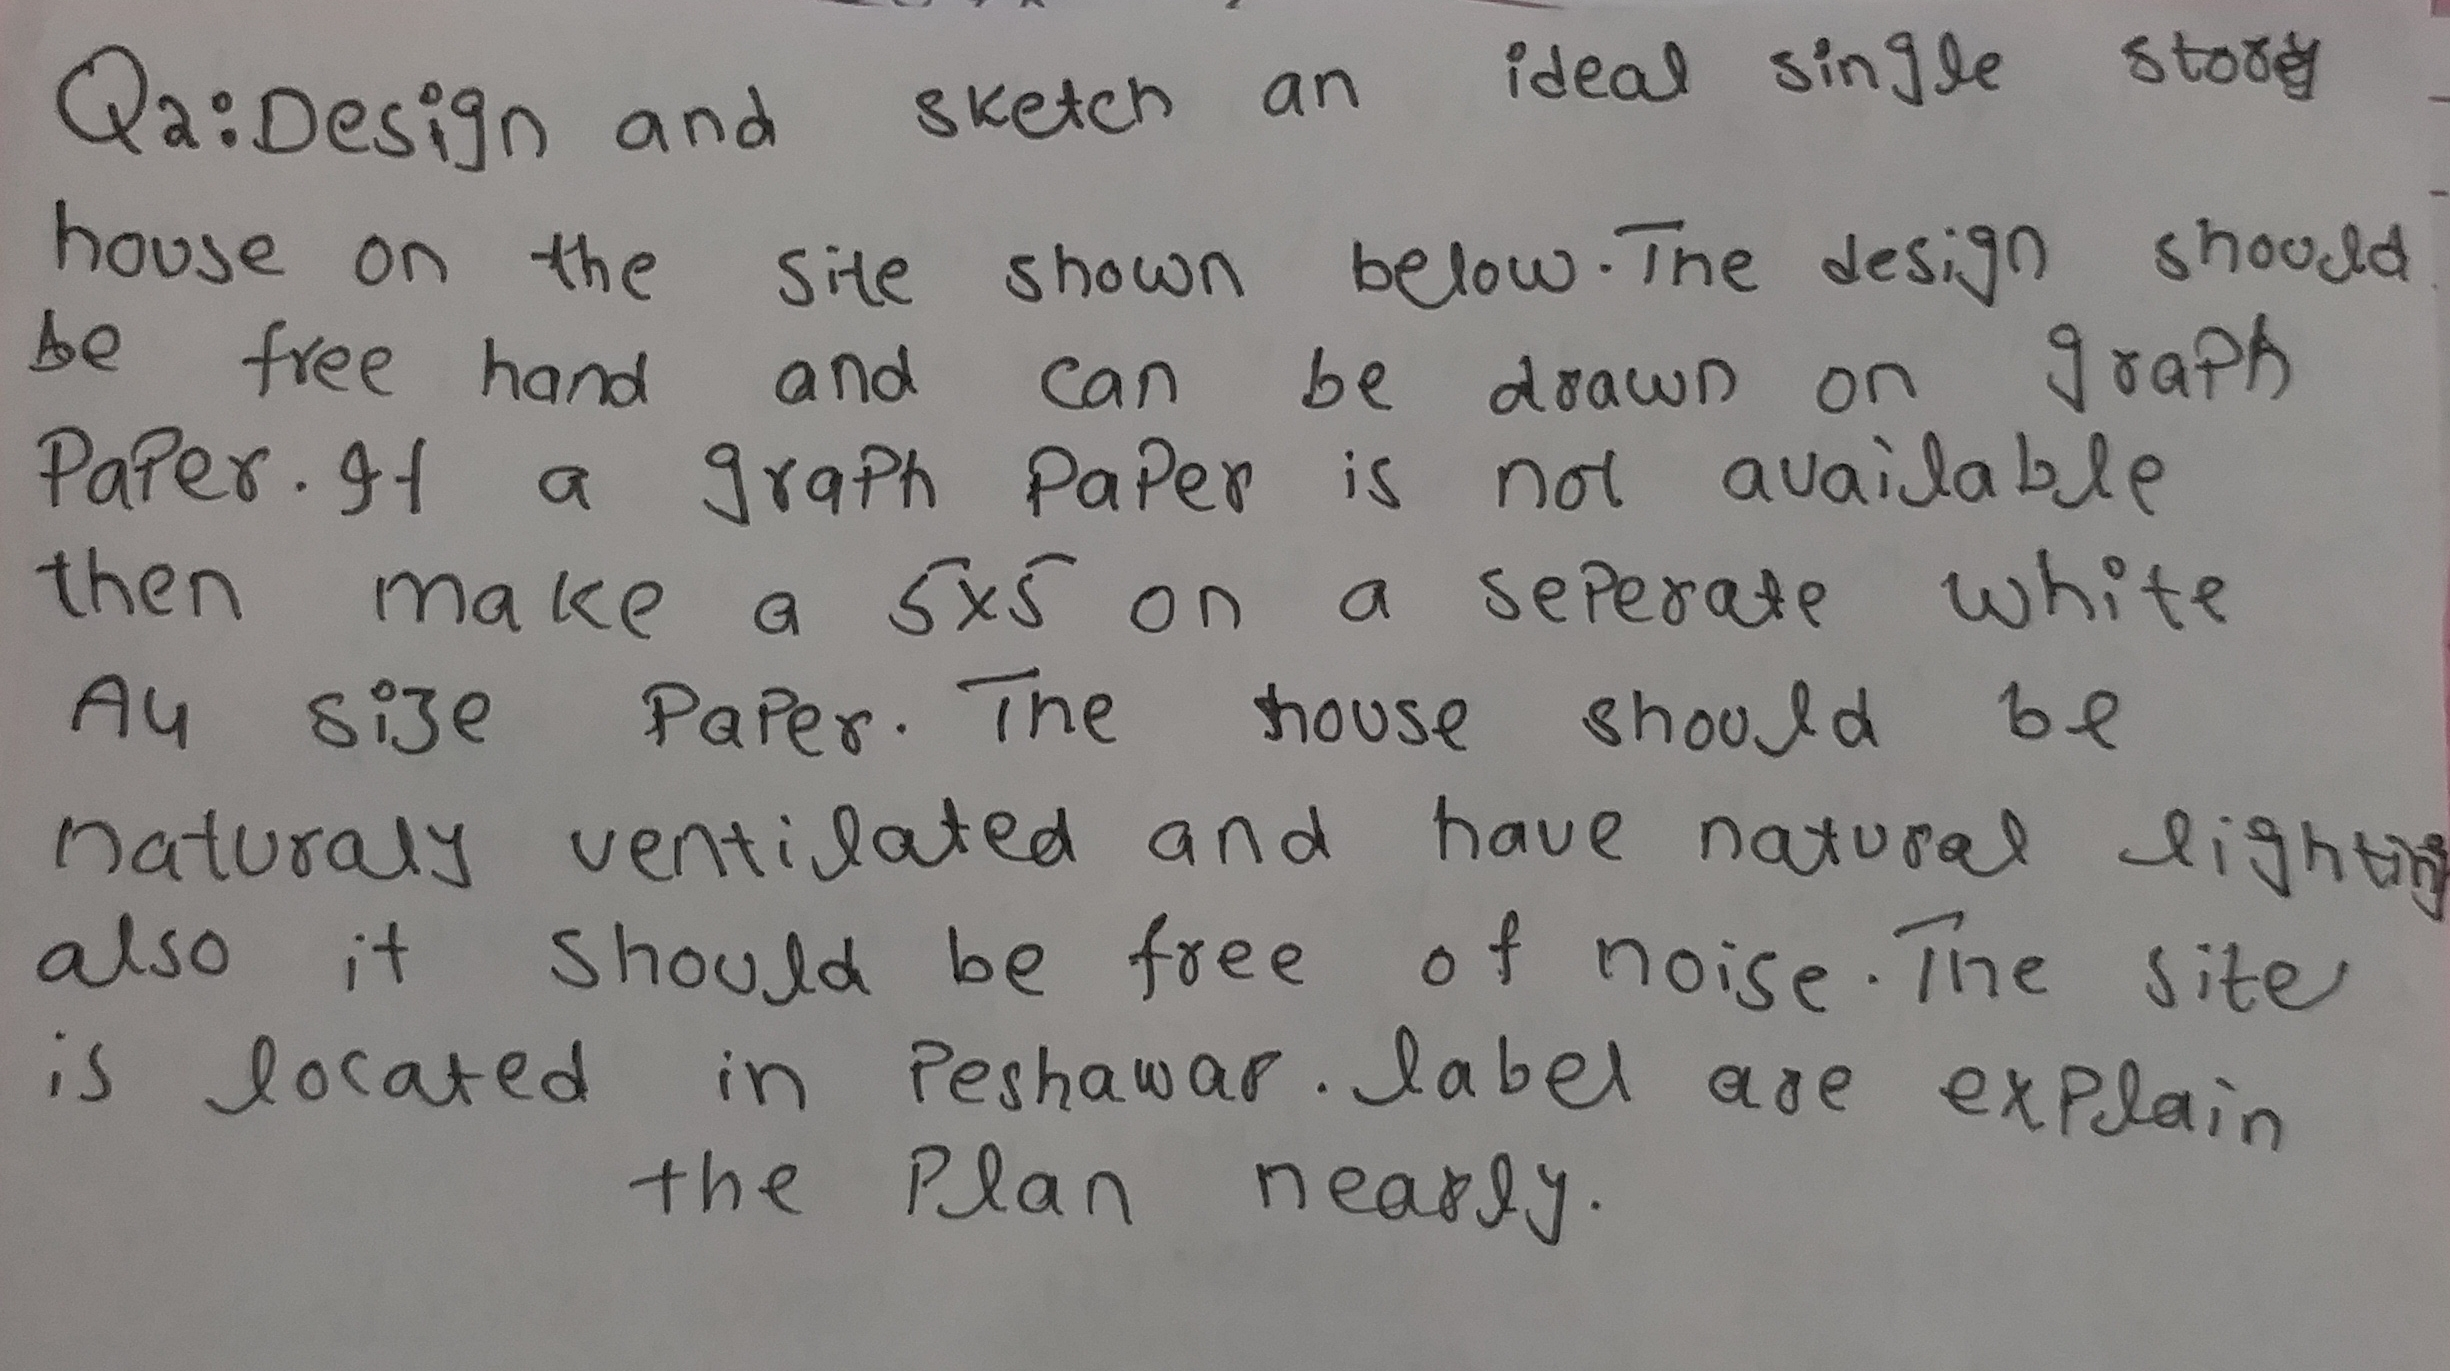 Q2: Design and sketch an ideal single story
house on the site shown below. The design should
be free hand and can be drawn on graph
Paper. If a graph Paper is not available
then make a 5x5 on a seperate white
A4 size Paper. The house should be
naturaly ventilated and have natural lighting
also it should be free of noise. The site
is located in Peshawar. label are explain
the Plan nearly.